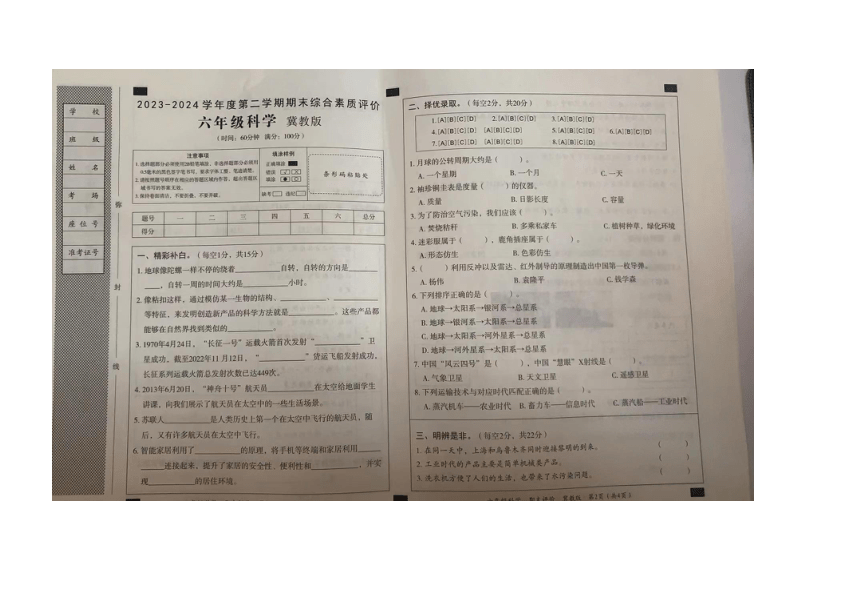 学 校
班 级
姓 名
考 场
座 位 号
准考证号
弥
封
线
2023-2024学年度第二学期期末综合素质评价
六年级科学 冀教版
(时间：60分钟 满分：100分)
注意事项
填涂样例
正确填涂
条形码粘贴处
题号 一 二 三 四 五 六 总分
得分
一、精彩补白。(每空1分，共15分)
1. 地球像陀螺一样不停的绕着________自转，自转的方向是________
____，自转一周的时间大约是________小时。
2. 像粘扣这样，通过模仿某一生物的结构、________、________
等特征，来发明创造新产品的科学方法就是________。这些产品都
能够在自然界找到类似的________。
3. 1970年4月24日，“长征一号”运载火箭首次发射“________”卫
星成功。截至2022年11月12日，“________”货运飞船发射成功，
长征系列运载火箭总发射次数已达449次。
4. 2013年6月20日，“神舟十号”航天员________在太空给地面学生
讲课，向我们展示了航天员在太空中的一些生活场景。
5. 苏联人________是人类历史上第一个在太空中飞行的航天员，随
后，又有许多航天员在太空中飞行。
6. 智能家居利用了________的原理，将手机等终端和家居利用____
____连接起来，提升了家居的安全性、便利性和________，并实
现________的居住环境。
二、择优录取。(每空2分，共20分)
1. [A][B][C][D] 2. [A][B][C][D] 3. [A][B][C][D]
4. [A][B][C][D] [A][B][C][D] 5. [A][B][C][D] 6. [A][B][C][D]
7. [A][B][C][D] [A][B][C][D] 8. [A][B][C][D]
1. 月球的公转周期大约是( )。
A. 一个星期 B. 一个月 C. 一天
2. 袖珍铜圭表是度量( )的仪器。
A. 质量 B. 日影长度 C. 容量
3. 为了防治空气污染，我们应该( )。
A. 焚烧秸秆 B. 多乘私家车 C. 植树种草，绿化环境
4. 迷彩服属于( )，鹿角插座属于( )。
A. 形态仿生 B. 色彩仿生
5. ( )利用反冲以及雷达、红外制导的原理制造出中国第一枚导弹。
A. 杨伟 B. 袁隆平 C. 钱学森
6. 下列排序正确的是( )。
A. 地球→太阳系→银河系→总星系
B. 地球→银河系→太阳系→总星系
C. 地球→太阳系→河外星系→总星系
D. 地球→河外星系→太阳系→总星系
7. 中国“风云四号”是( )，中国“慧眼”X射线是( )。
A. 气象卫星 B. 天文卫星 C. 遥感卫星
8. 下列运输技术与对应时代匹配正确的是( )。
A. 蒸汽机车——农业时代 B. 畜力车——信息时代 C. 蒸汽船——工业时代
三、明辨是非。(每空2分，共22分)
1. 在同一天中，上海和乌鲁木齐同时迎接黎明的到来。 ( )
2. 工业时代的产品主要是简单机械类产品。 ( )
3. 洗衣机方便了人们的生活，也带来了水污染问题。 ( )